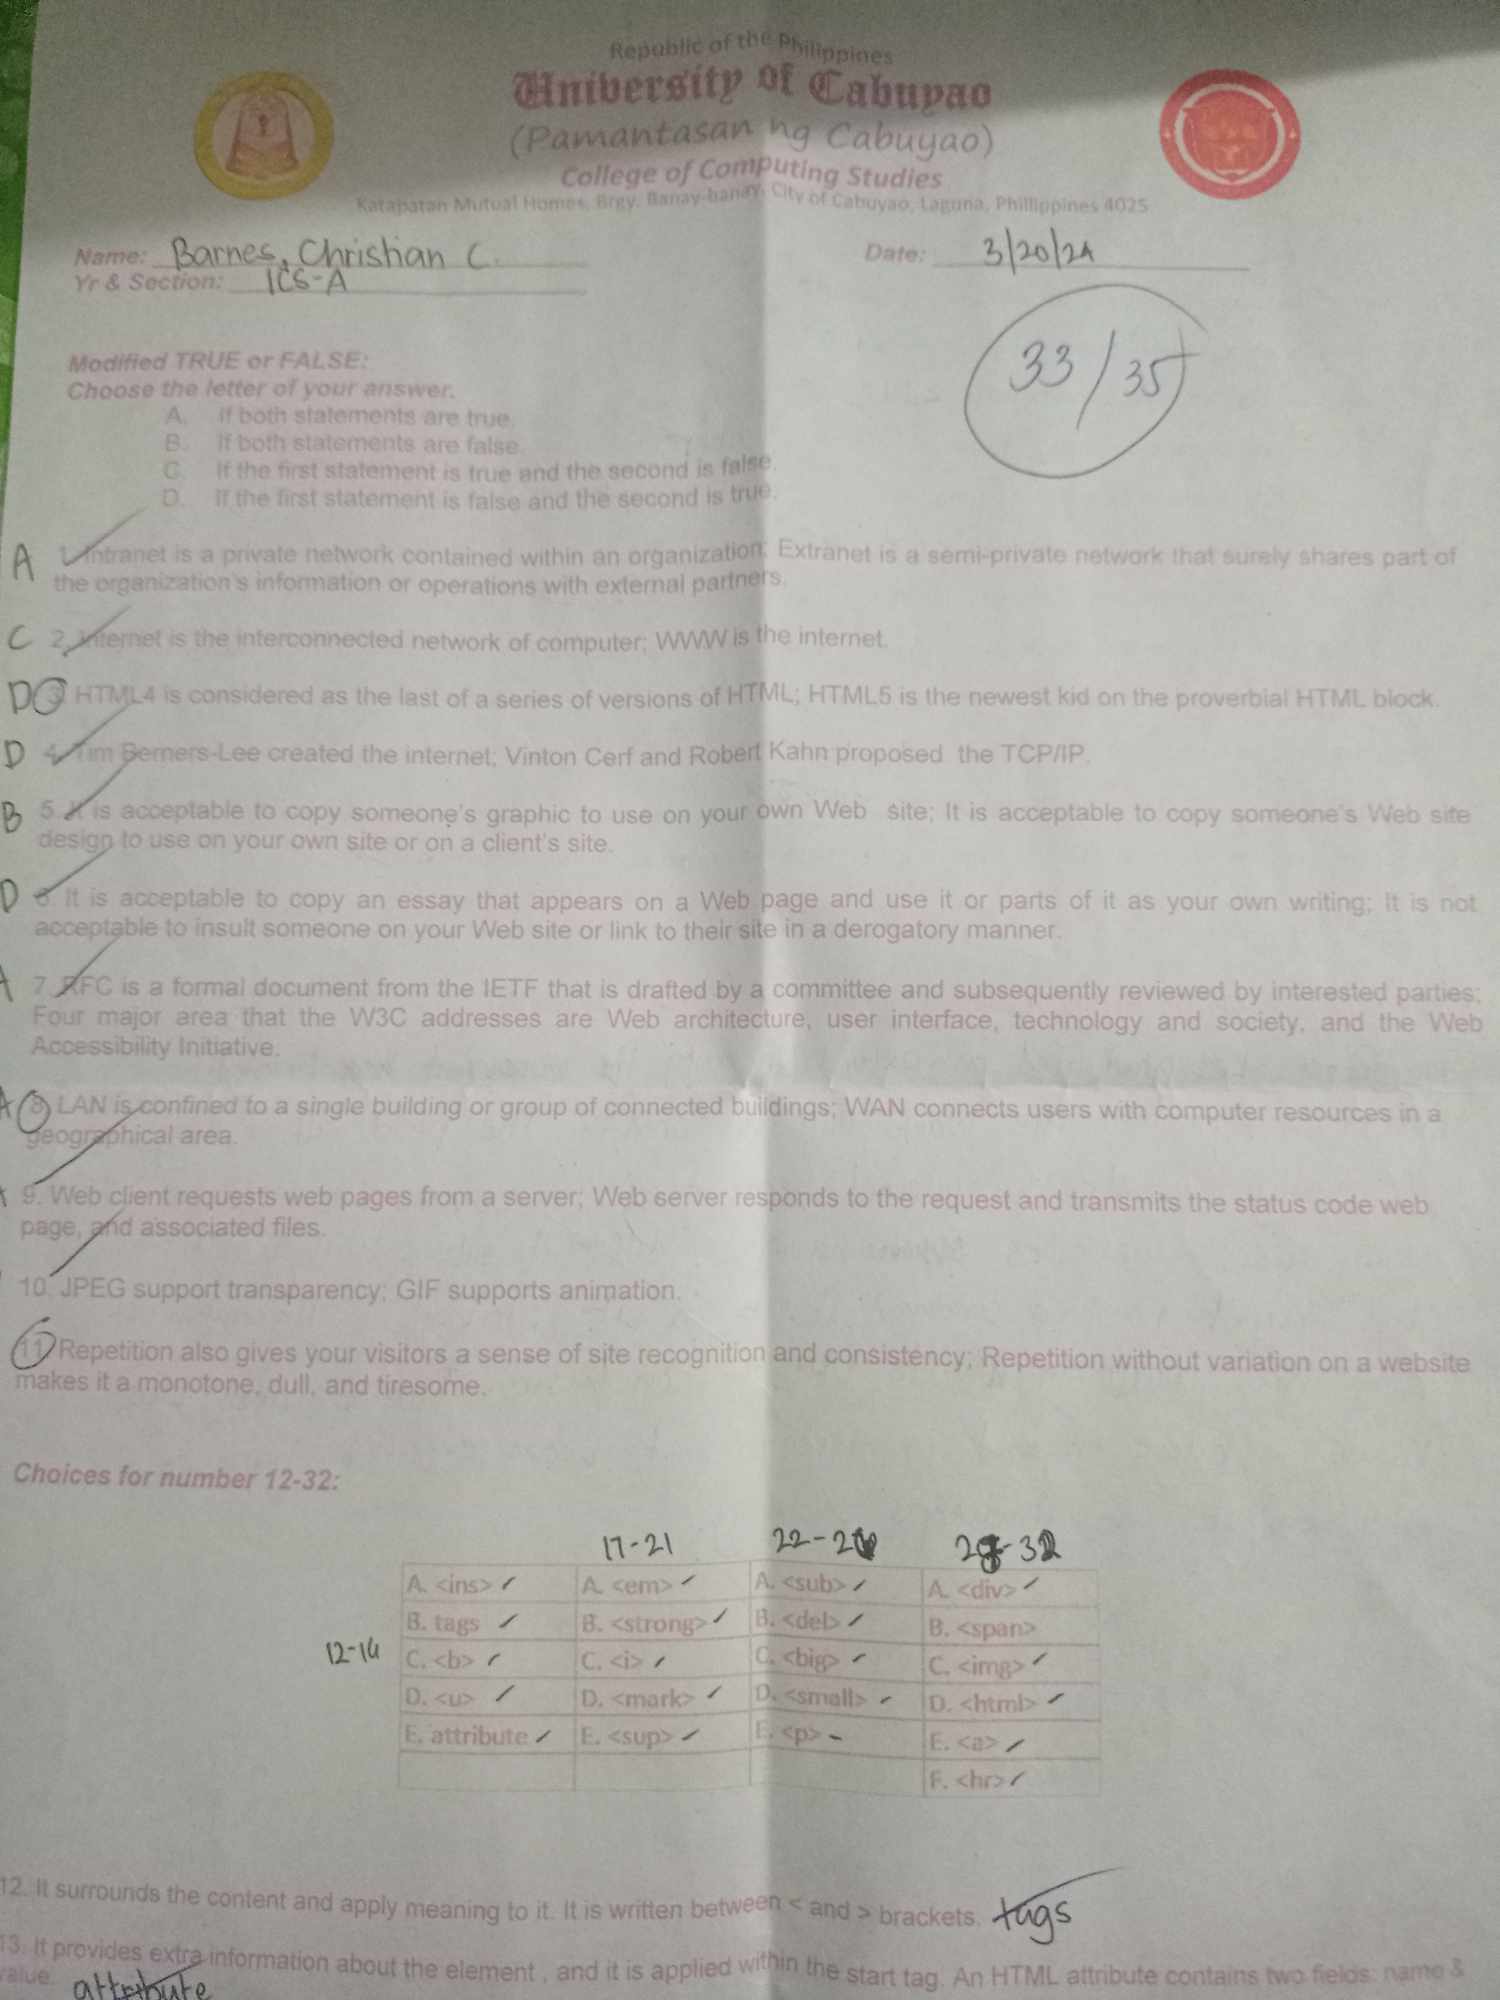 Republic of the Philippines
University of Cabuyao
(Pamantasan ng Cabuyao)
College of Computing Studies
Katapatan Mutual Homes, Brgy. Banay-banay, City of Cabuyao, Laguna, Phillippines 4025
Name: Barnes, Christian C. Date: 3/20/24
Yr & Section: 1CS-A
33/35
Modified TRUE or FALSE:
Choose the letter of your answer.
A. If both statements are true.
B. If both statements are false.
C. If the first statement is true and the second is false.
D. If the first statement is false and the second is true.
A 1. Intranet is a private network contained within an organization; Extranet is a semi-private network that surely shares part of
the organization's information or operations with external partners.
C 2. Internet is the interconnected network of computer; WWW is the internet.
D 3. HTML4 is considered as the last of a series of versions of HTML; HTML5 is the newest kid on the proverbial HTML block.
D 4. Tim Berners-Lee created the internet; Vinton Cerf and Robert Kahn proposed the TCP/IP.
B 5. It is acceptable to copy someone's graphic to use on your own Web site; It is acceptable to copy someone's Web site
design to use on your own site or on a client's site.
D 6. It is acceptable to copy an essay that appears on a Web page and use it or parts of it as your own writing; It is not
acceptable to insult someone on your Web site or link to their site in a derogatory manner.
7. RFC is a formal document from the IETF that is drafted by a committee and subsequently reviewed by interested parties;
Four major area that the W3C addresses are Web architecture, user interface, technology and society, and the Web
Accessibility Initiative.
A 8. LAN is confined to a single building or group of connected buildings; WAN connects users with computer resources in a
geographical area.
9. Web client requests web pages from a server; Web server responds to the request and transmits the status code web
page, and associated files.
10. JPEG support transparency; GIF supports animation.
11. Repetition also gives your visitors a sense of site recognition and consistency; Repetition without variation on a website
makes it a monotone, dull, and tiresome.
Choices for number 12-32:
17-21 22-26
A. <ins> A. <em> A. <sub> A. <div>
B. tags B. <strong> B. <del> B. <span>
12-16 C. <b> C. <i> C. <big> C. <img>
D. <u> D. <mark> D. <small> D. <html>
E. attribute E. <sup> E. <p> E. <a>
F. <hr>
12. It surrounds the content and apply meaning to it. It is written between < and > brackets. tags
13. It provides extra information about the element , and it is applied within the start tag. An HTML attribute contains two fields: name &
value. attribute